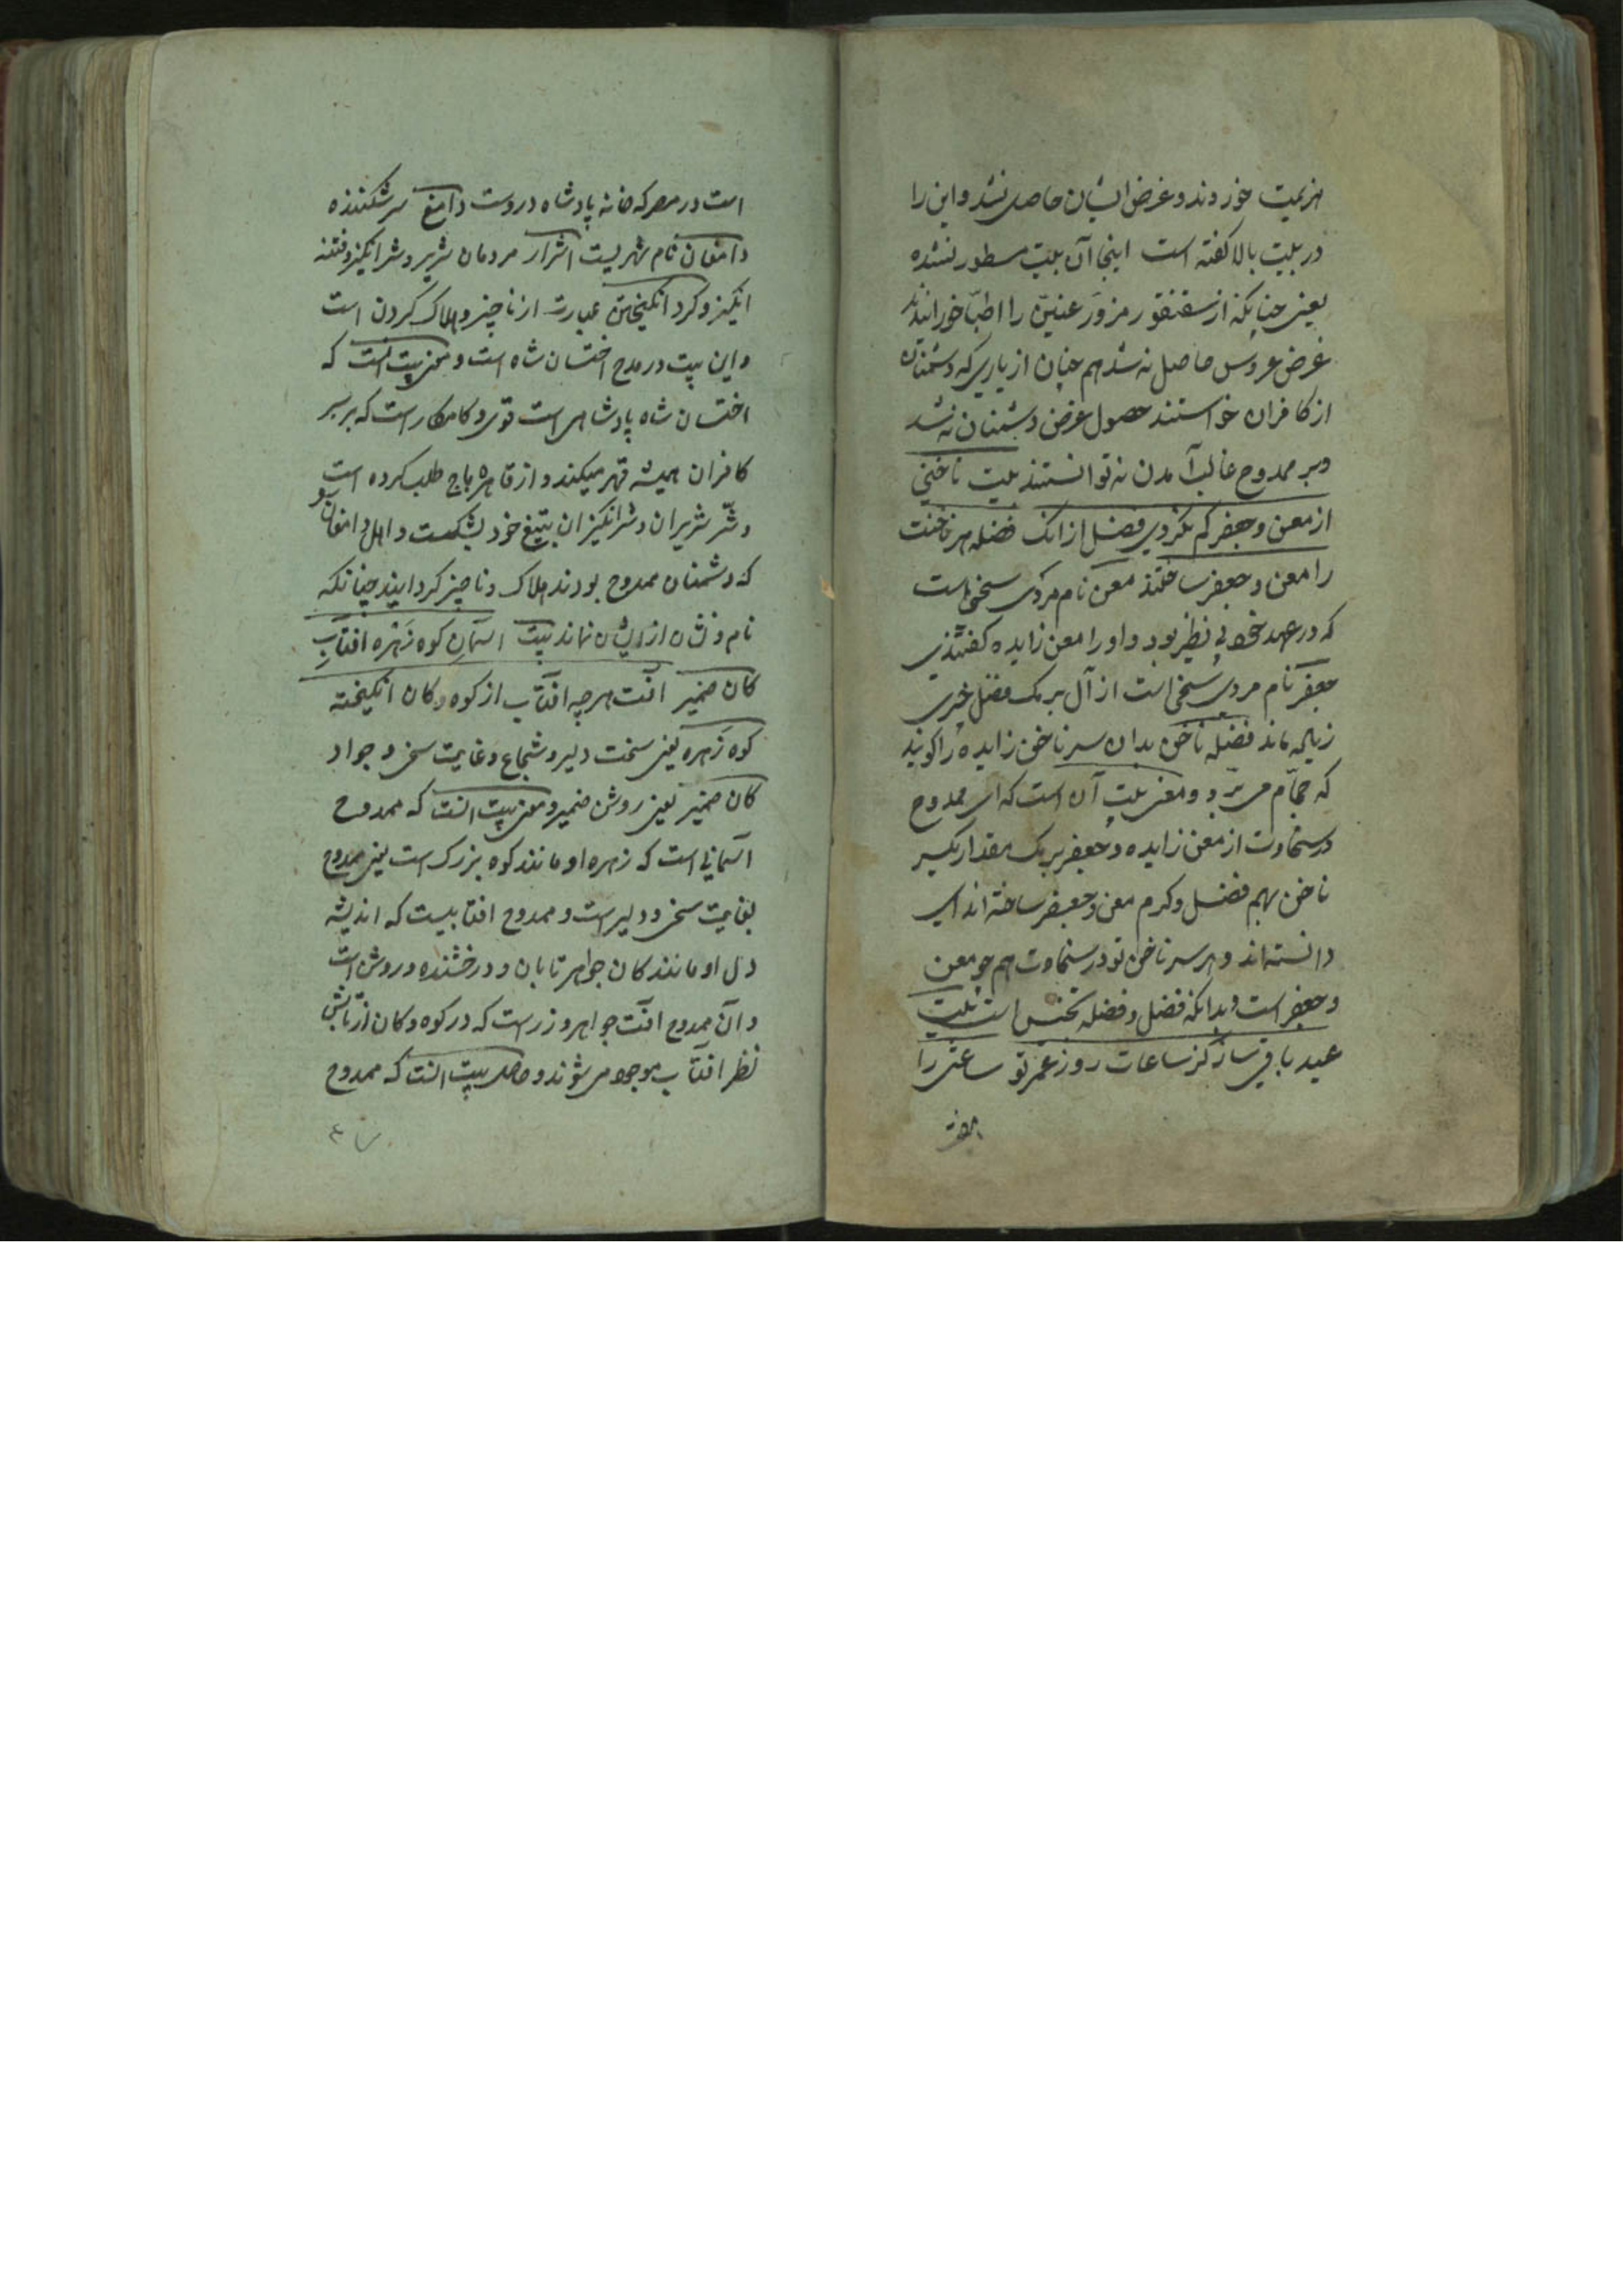 هزیمت خوردند و غرض ایشان حاصل نشد و این را
در بیت بالا گفته است اینجا آن بیت مسطور نشده
یعنی چنانکه از سقنقور مزوّر عنّین را اطبّا خورانیدند
غرض عروس حاصل نه شد هم چنان از یاری که دشمنان
از کافران خواستند حصول غرض دشمنان نه شد
و بر ممدوح غالب آمدن نه توانستند بیت ناخنی
از معن و جعفر کم نکردی فضل از انک فضله هر ناخنت
را معن و جعفر ساختند معن نام مردی سخی است
که در عهد خود بی نظیر بود و او را معن زایده گفتندی
جعفر نام مردی سخی است از آل برمک فضل چیزی
زیاله ماند فضله ناخن بدان سر ناخن زایده را گویند
که حجّام می برّد و معنی بیت آن است که ای ممدوح
در سخاوت از معن زایده و جعفر برمک مقدار یکسر
ناخن بهم فضل و کرم معن و جعفر ساخته اند ای
دانسته اند و هر سر ناخن تو در سخاوت هم چو معن
و جعفر است و بدانکه فضل و فضله تجنیس است بیت
عید باقی ساز کز ساعات روز عمر تو ساعتی را
است در مصر که خانه پادشاه دروست دامغ سرشکننده
دامغان نام شهریست اشرار مردمان شریر و شرانگیز و فتنه
انگیز و کرد انگیختن عبارت از ناچیز و هلاک کردن است
و این بیت در مدح اخستان شاه است و معنی بیت انست که
اخستان شاه پادشاهی است قوی و کامکار است که بر سر
کافران همیشه قهر میکند و از قاهره باج طلب کرده است
و شرّ شریران و شرانگیزان بتیغ خود بشکست و اهل دامغان
که دشمنان ممدوح بودند هلاک و ناچیز کردانید چنانکه
نام و نشان از ایشان نماند بیت اسمان کوه زَهره افتابِ
کان ضمیر آفت هرچه افتاب از کوه و کان انگیخته
کوه زَهره یعنی سخت دلیر و شجاع و غایت سخی و جواد
کان ضمیر یعنی روشن ضمیر و معنی بیت انست که ممدوح
آسمانی است که زهره او مانند کوه بزرک است یعنی ممدوح
بغایت سخی و دلیر است و ممدوح افتابیست که اندیشه
دل او مانند کان جواهر تابان و درخشنده و روشن است
و آن ممدوح آفت جواهر و زر است که در کوه و کان از تابش
نظر افتاب موجود می شوند و حاصل بیت انست که ممدوح